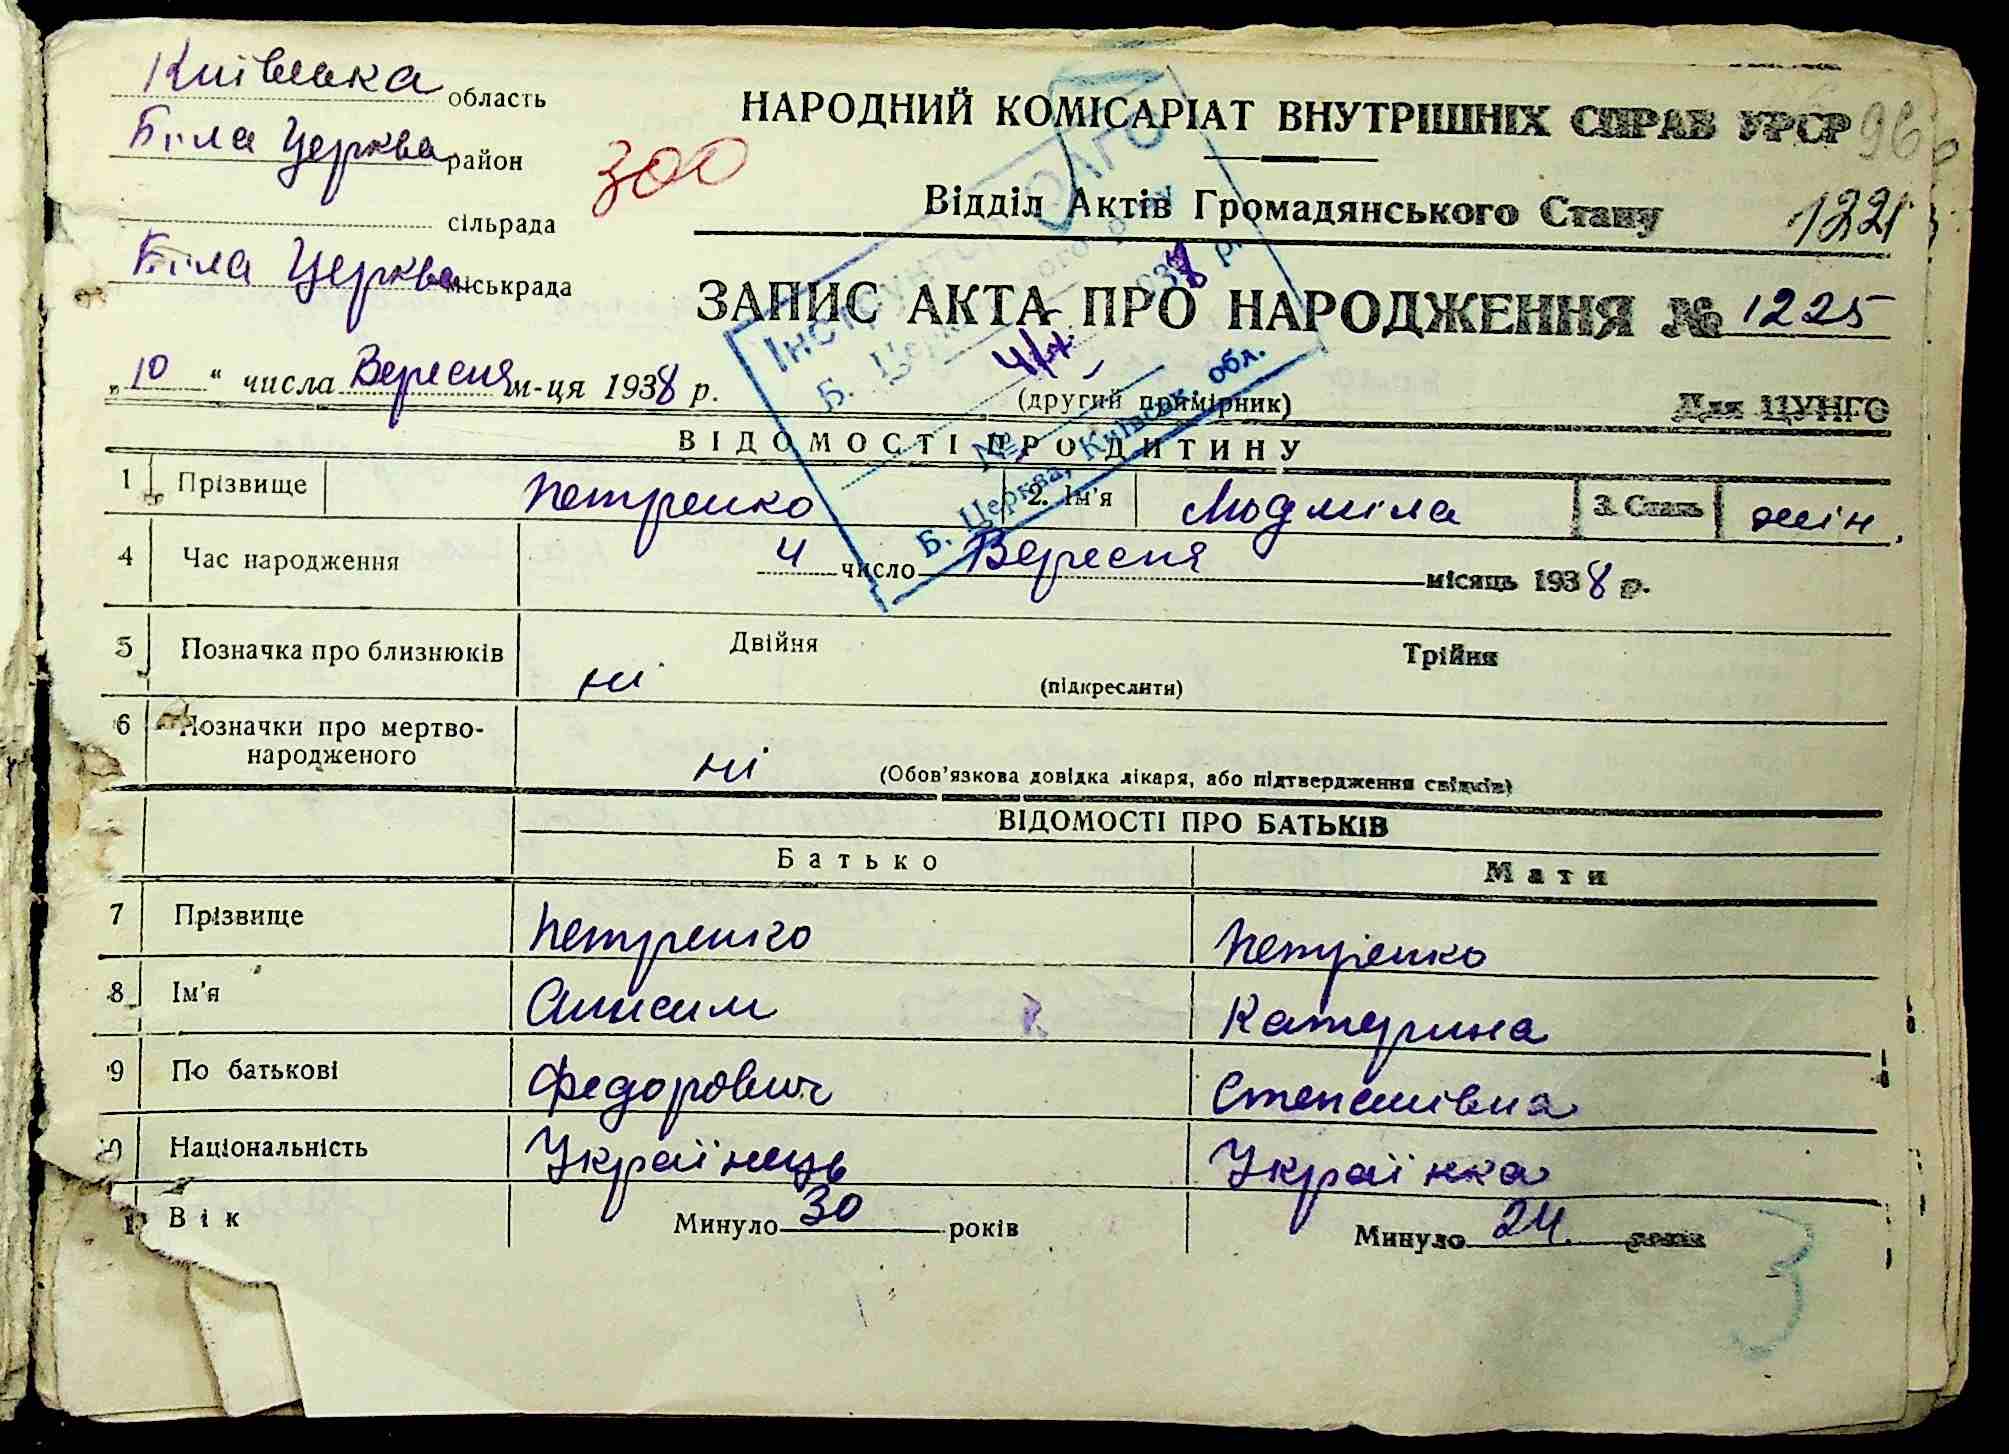 Київська область
Біла Церква район
сільрада
Біла Церква міськрада
300
НАРОДНИЙ КОМІСАРІАТ ВНУТРІШНІХ СПРАВ УРСР
96
Відділ Актів Громадянського Стану
1221
ЗАПИС АКТА ПРО НАРОДЖЕННЯ № 1225
„10“ числа Вересня м-ця 1938 р.
(другий примірник)
Для ЦУНГО
Б. Церква, Київськ. обл.
ВІДОМОСТІ ПРО ДИТИНУ
1 Прізвище Петренко 2. Ім'я Людміла 3. Стать жін.
4 Час народження 4 число Вересня місяць 1938 р.
5 Позначка про близнюків ні Двійня (підкреслити) Трійня
6 Позначки про мертво-
народженого ні (Обов'язкова довідка лікаря, або підтвердження свідків)
ВІДОМОСТІ ПРО БАТЬКІВ
Батько Мати
7 Прізвище Петренко Петренко
8 Ім'я Онисим Катерина
9 По батькові Федорович Степанівна
Національність Українець Українка
Вік Минуло 30 років Минуло 24 років
3